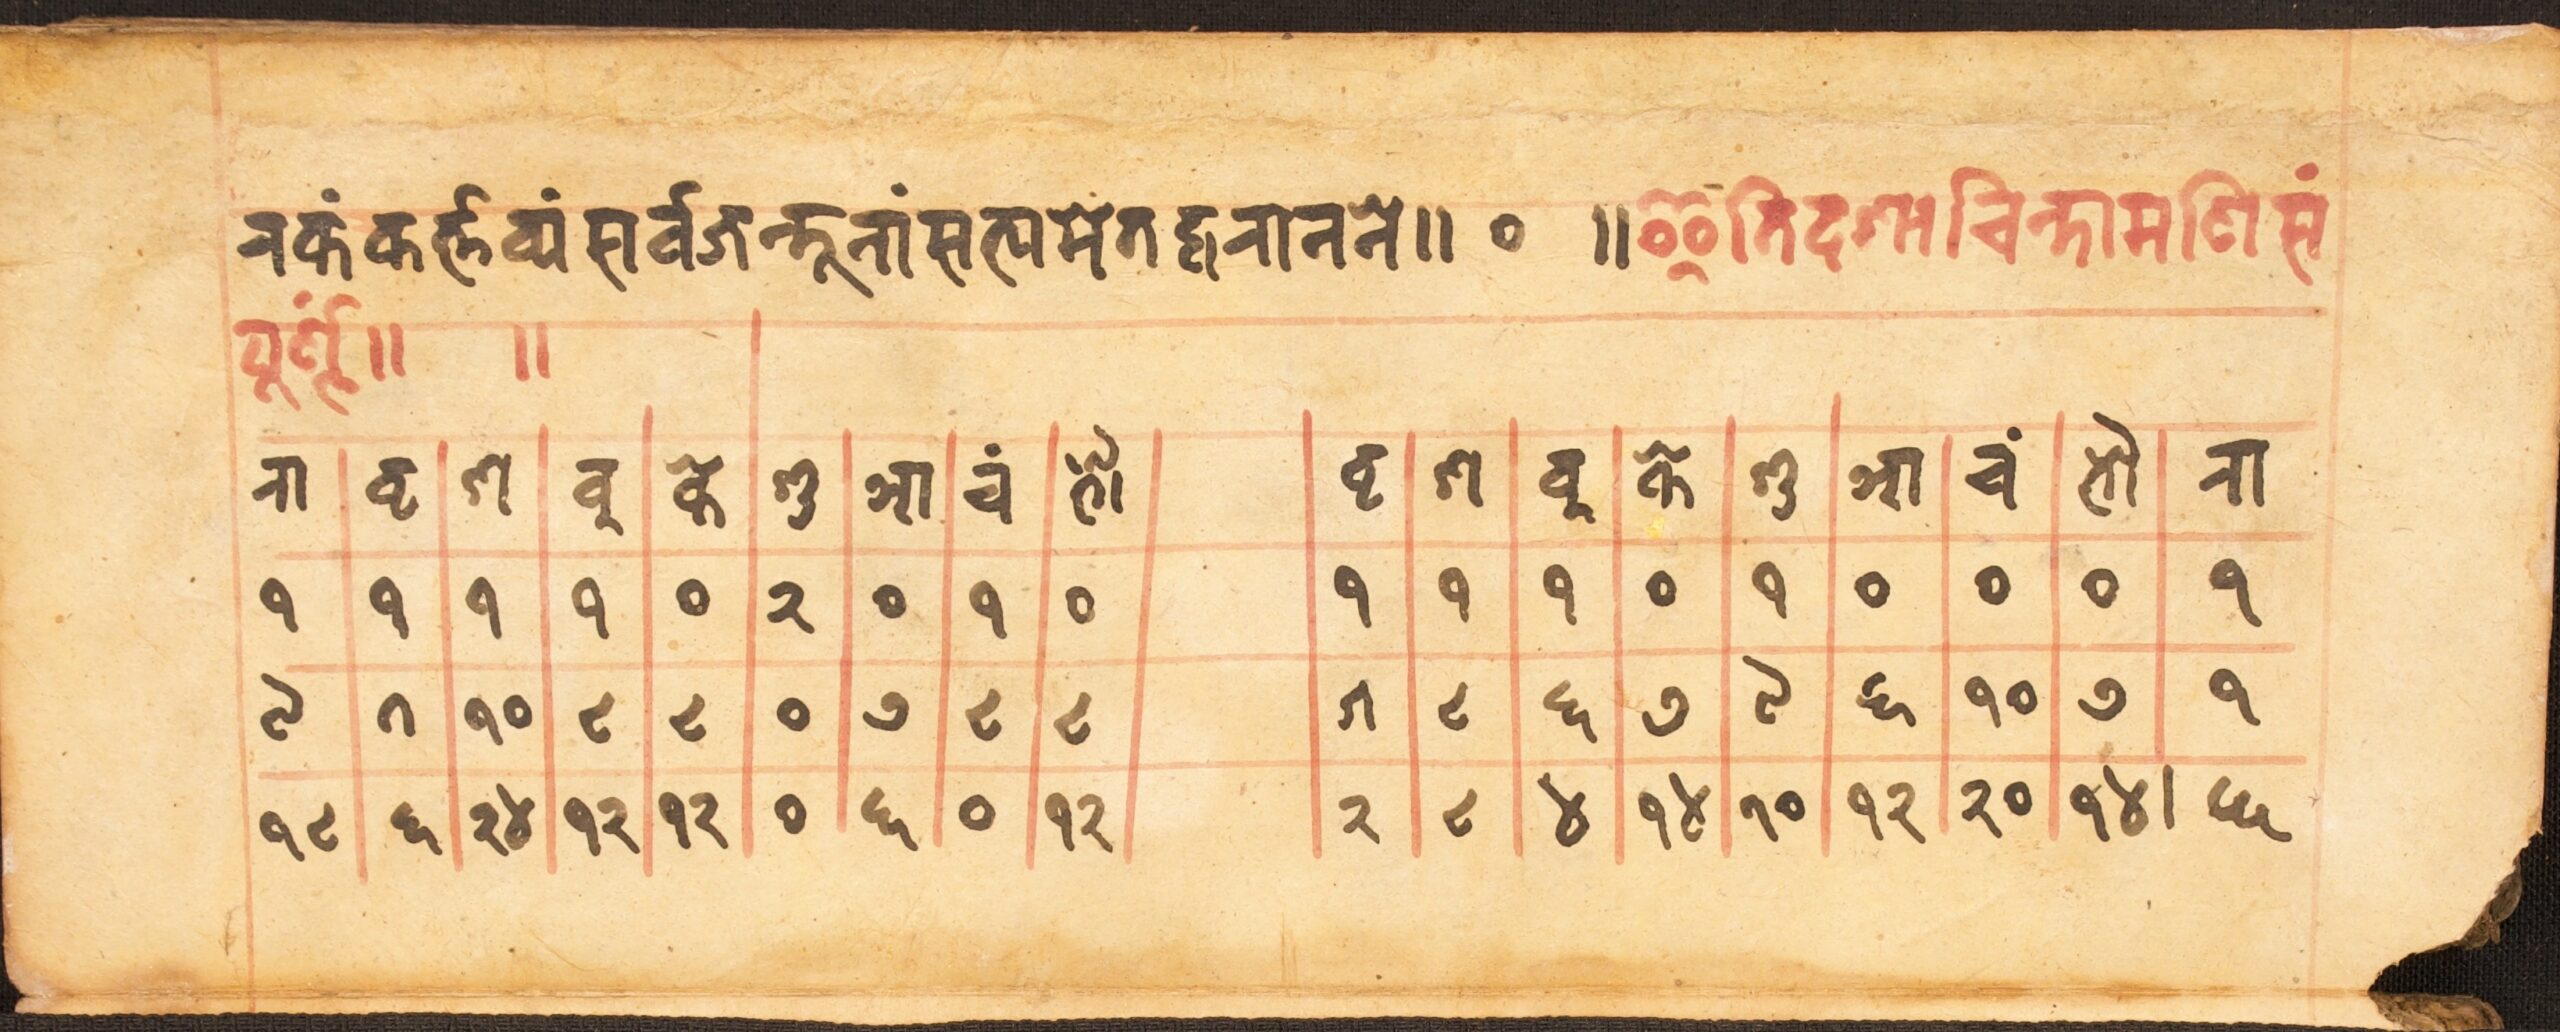 नकं कर्त्तव्यं सर्वजन्तूनां सत्यमेतद्वरानने॥ ० ॥इति दशाचिन्तामणि सं
पूर्णं॥ ॥
रा वृ श वु के शु आ चं भौ वृ श वु के शु आ चं भौ रा
१ १ १ १ ० २ ० १ ० १ १ १ ० १ ० ० ० १
९ १० ८ ८ ० ७ ८ ८ ५ ८ ६ ७ ९ ६ १० ७ १
१८ ६ २४ १२ १२ ० ६ ० १२ २ ८ ४ १४ १० १२ २० १४। ६